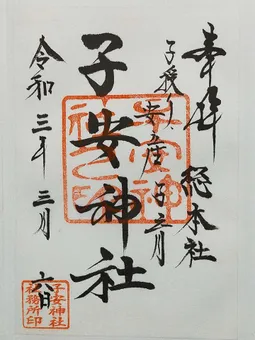 奉拝 総本社
子授け 安産
子安神社
令和三年三月
六日
子安神社
社務所印